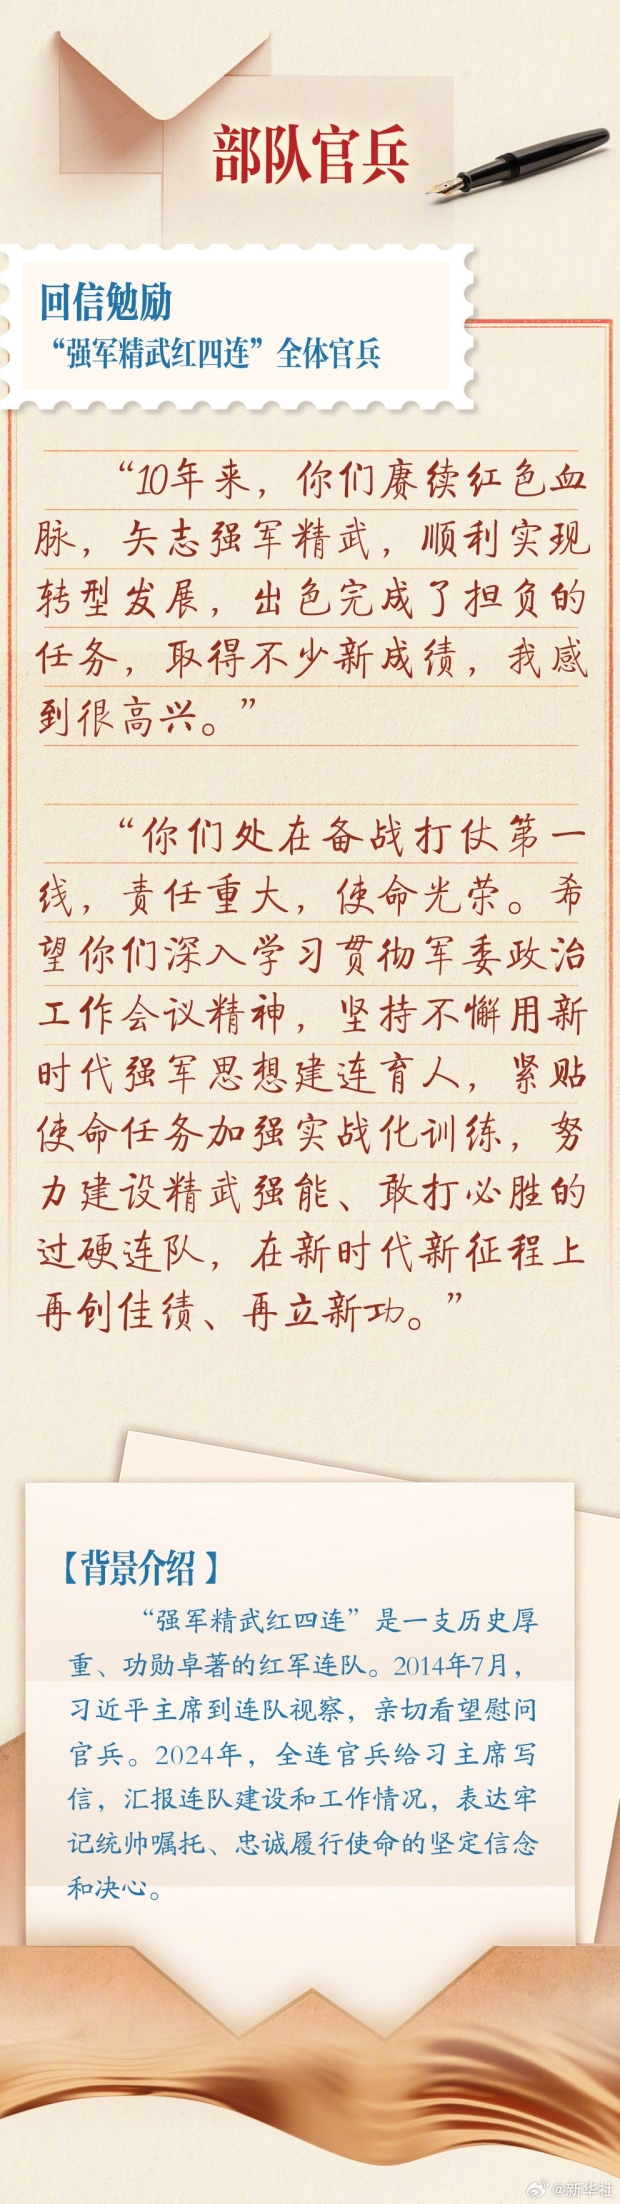 部队官兵
回信勉励
“强军精武红四连”全体官兵
“10年来，你们赓续红色血
脉，矢志强军精武，顺利实现
转型发展，出色完成了担负的
任务，取得不少新成绩，我感
到很高兴。”
“你们处在备战打仗第一
线，责任重大，使命光荣。希
望你们深入学习贯彻军委政治
工作会议精神，坚持不懈用新
时代强军思想建连育人，紧贴
使命任务加强实战化训练，努
力建设精武强能、敢打必胜的
过硬连队，在新时代新征程上
再创佳绩、再立新功。”
【背景介绍】
“强军精武红四连”是一支历史厚
重、功勋卓著的红军连队。2014年7月，
习近平主席到连队视察，亲切看望慰问
官兵。2024年，全连官兵给习主席写
信，汇报连队建设和工作情况，表达牢
记统帅嘱托、忠诚履行使命的坚定信念
和决心。
@新华社